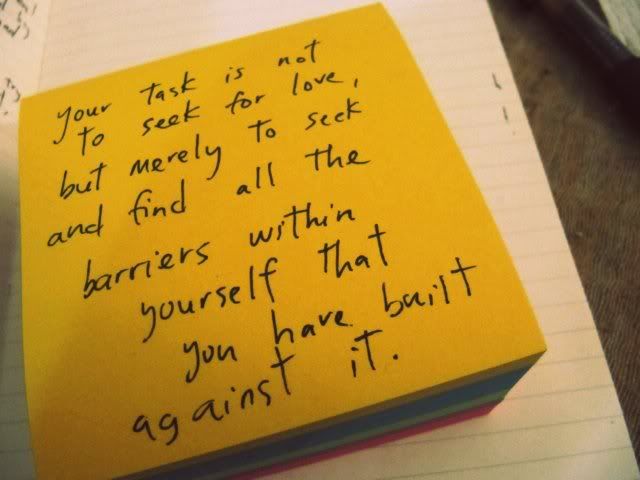 your task is not
to seek for love,
but merely to seek
and find all the
barriers within
yourself that
you have built
against it.